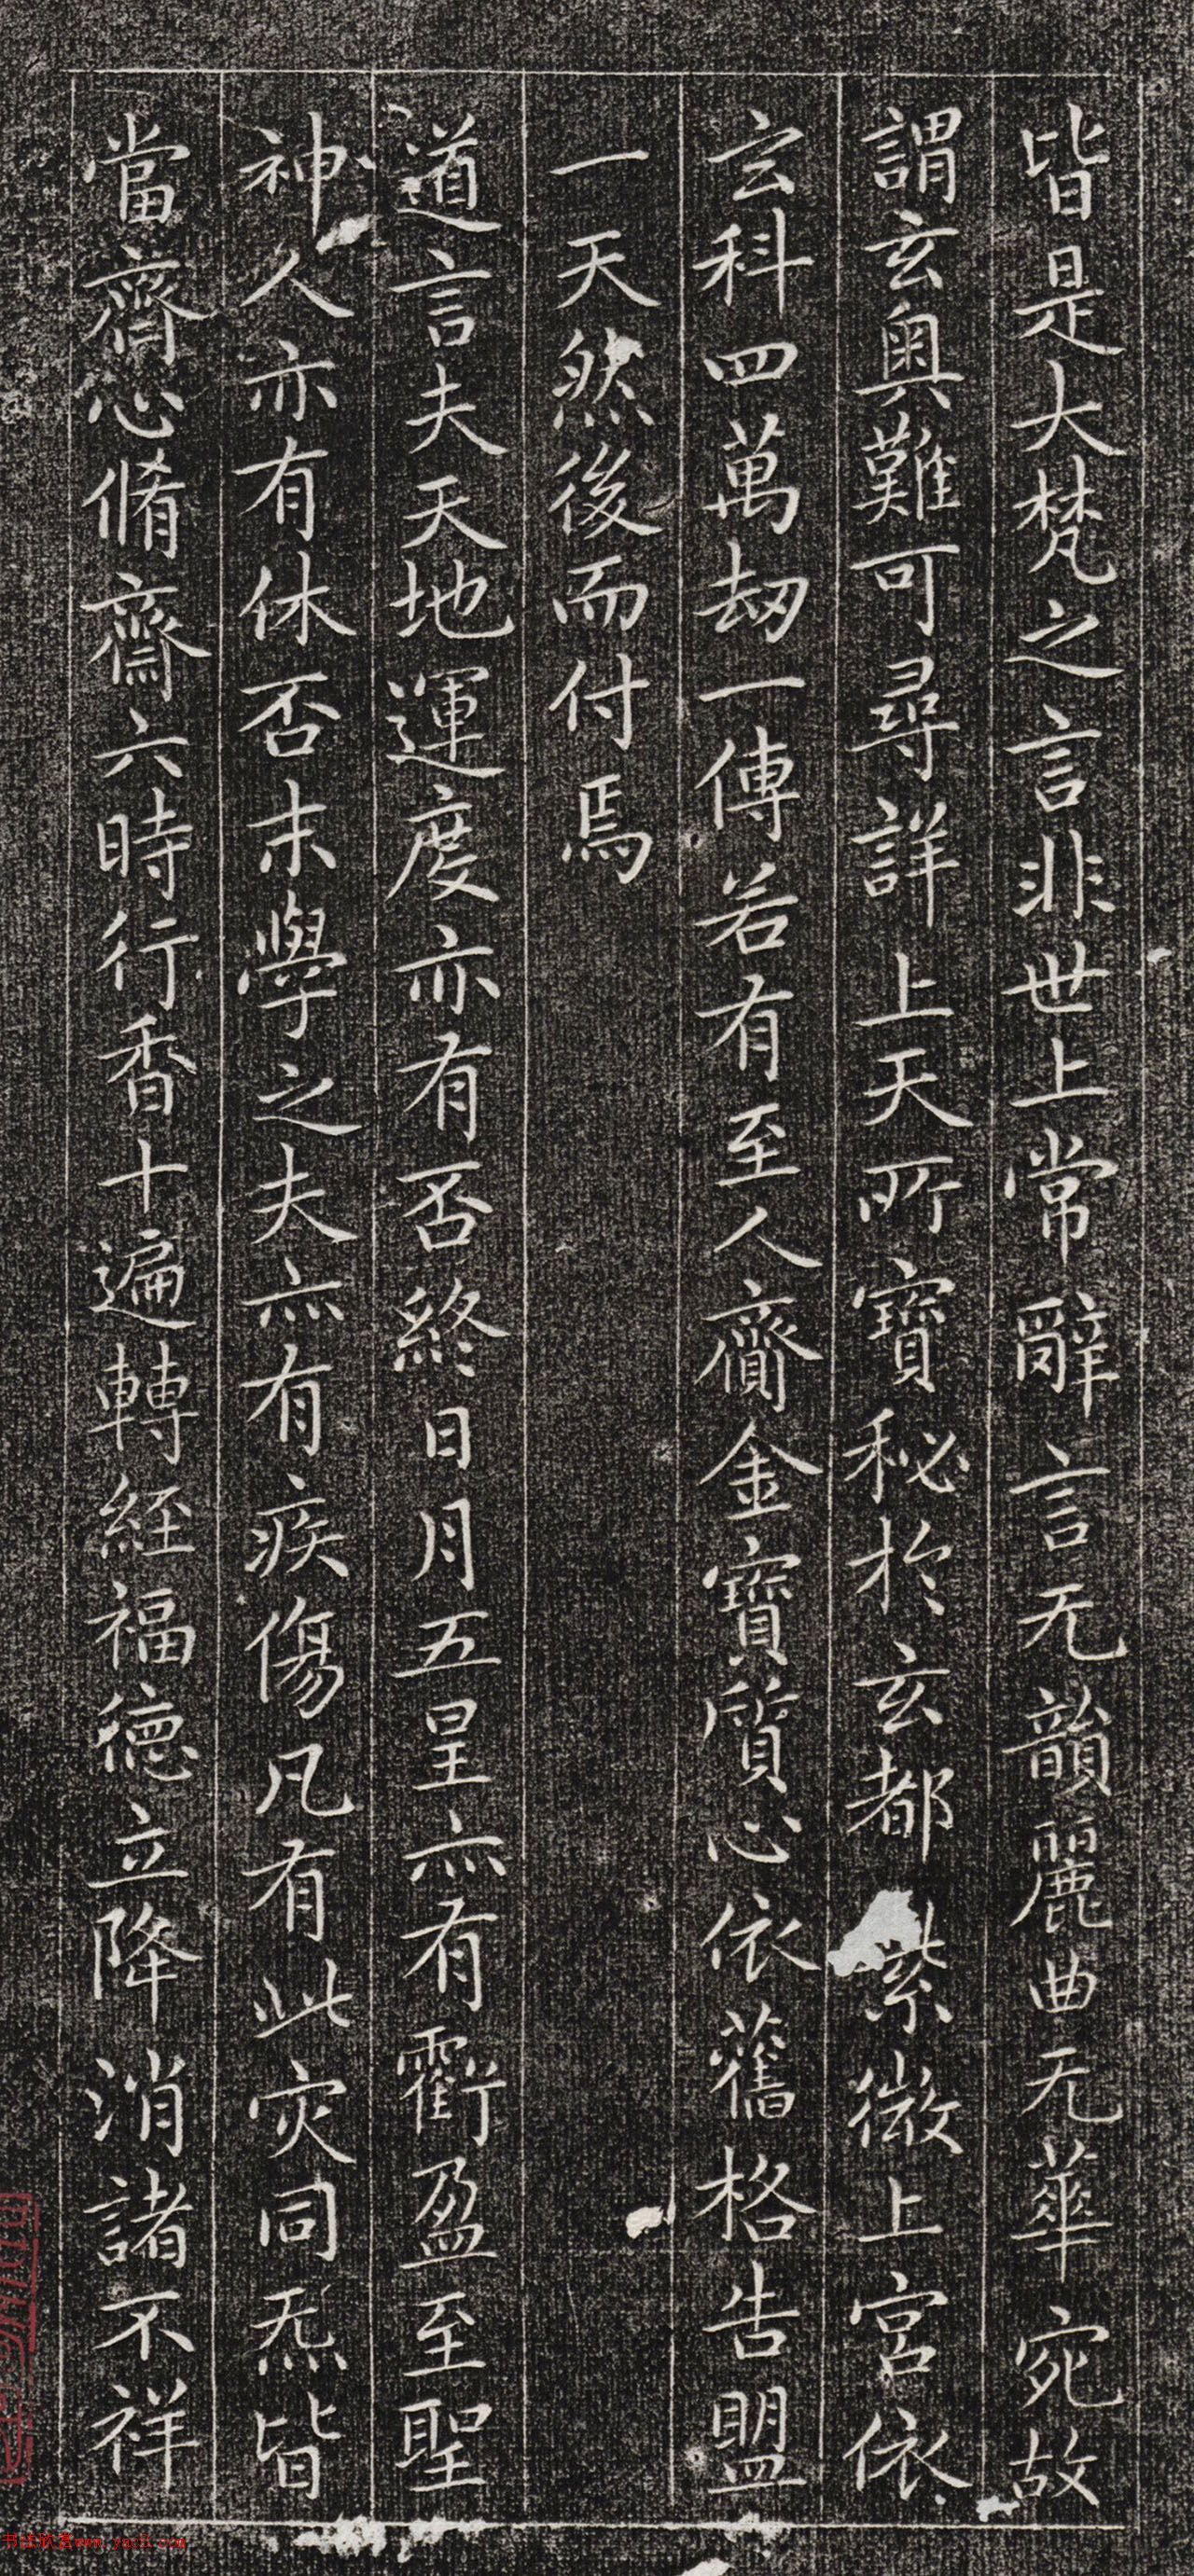 皆是大梵之言非世上常辭言无韻麗曲无華宛故
謂玄奥難可尋詳上天所寶秘於玄都紫微上宮依
玄科四萬劫一傳若有至人齎金寶質心依舊格告盟
一天然後而付焉
道言夫天地運度亦有否終日月五星亦有虧盈至聖
神人亦有休否末學之夫亦有疾傷凡有此灾同炁皆
當齊心脩齋六時行香十遍轉経福德立降消諸不祥
书法欣赏www.yac8.com